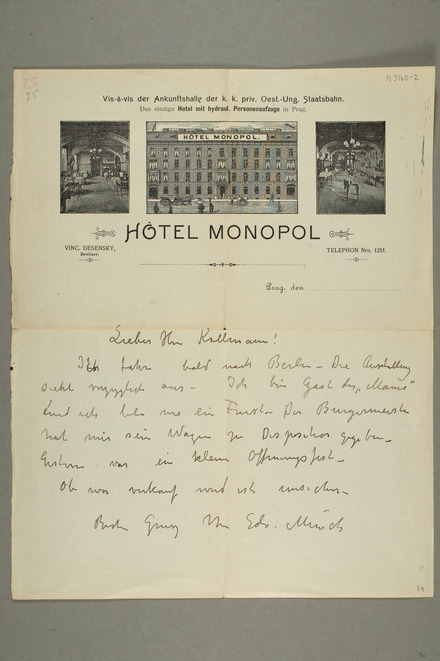 25
25
N 3160-2
Vis-à-vis der Ankunftshalle der k. k. priv. Oest.-Ung. Staatsbahn.
Das einzige Hotel mit hydraul. Personenaufzuge in Prag.
HÔTEL MONOPOL.
HÔTEL MONOPOL
VINC. DESENSKY,
Besitzer.
TELEPHON Nro. 1251.
Prag, den
Lieber Herr Kollmann!
Ich fahre bald nach Berlin – Die Ausstellung
sieht vorzüglich aus – Ich bin Gast des „Manes"
und ich lebe wie ein Furst – Der Burgermeister
hat mir sein Wagen zu Disposition gegeben –
Gestern war ein klein Öffnungsfest –
Ob was verkauf wird ist unsicher –
Besten Gruss Ihr Edv. Munch